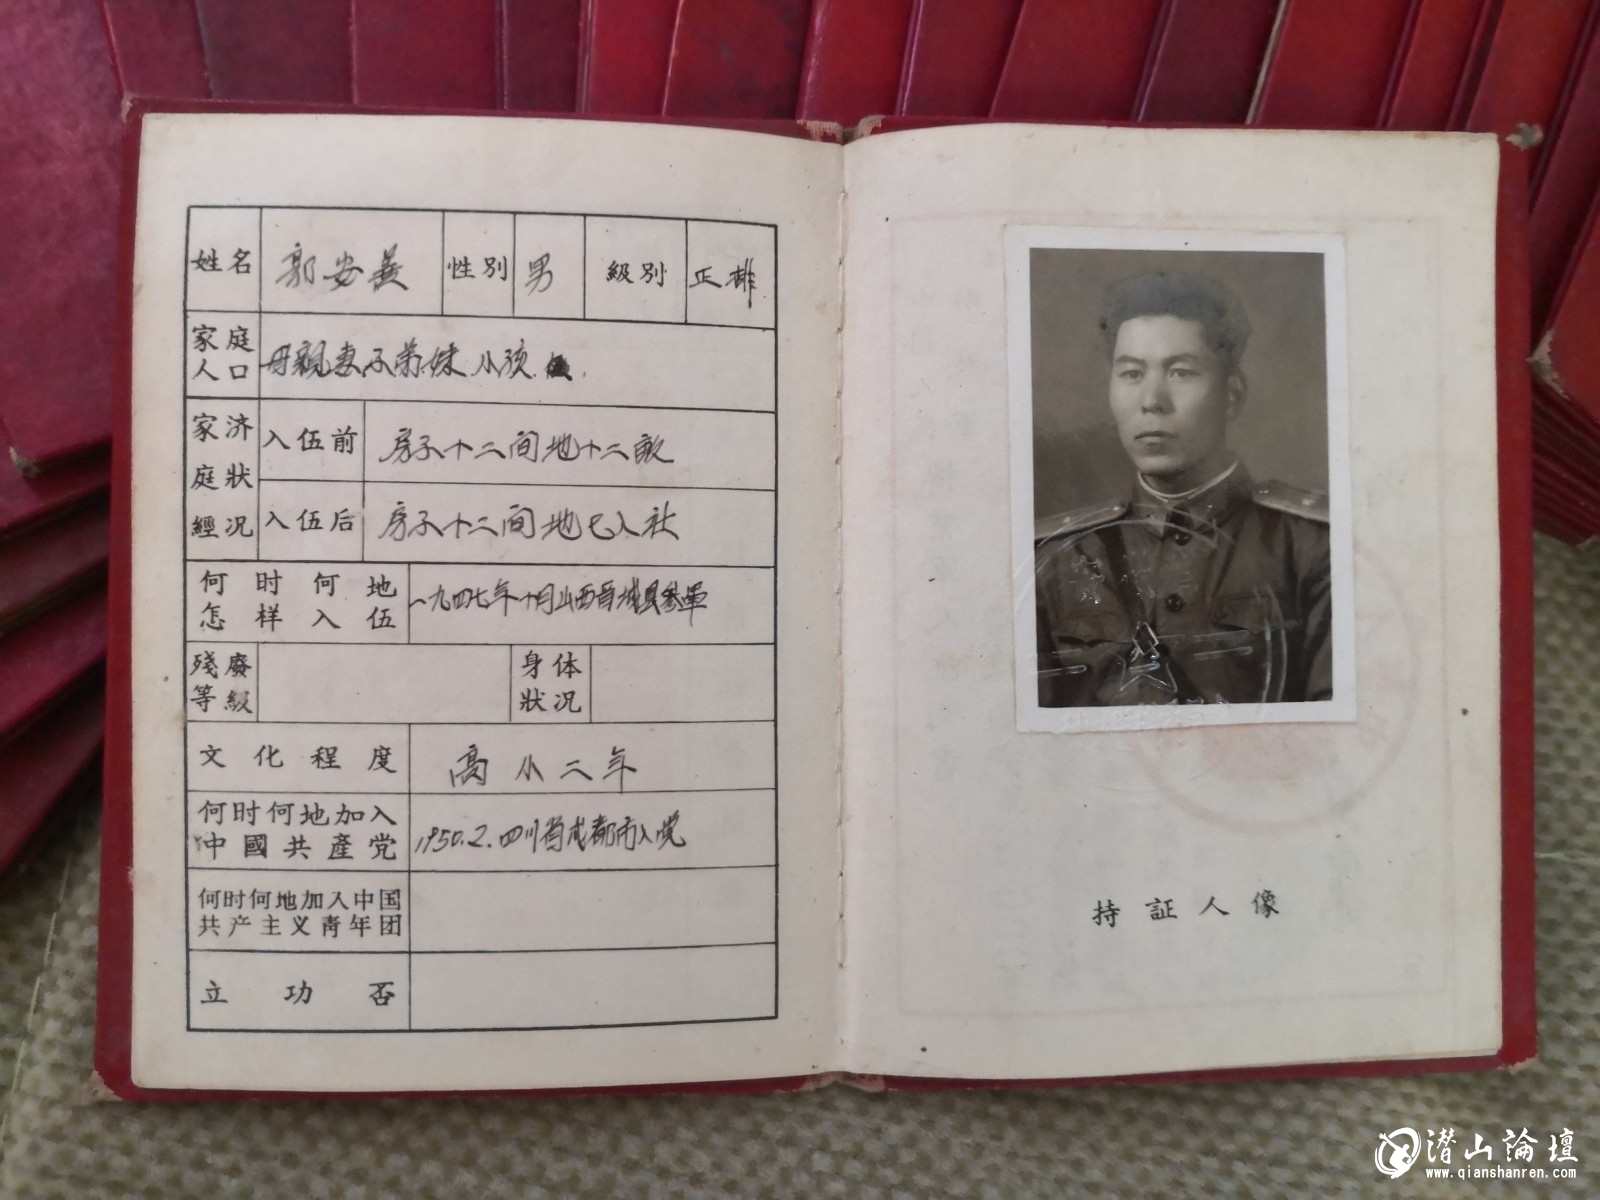 姓名 郭安義 性別 男 級別 正排
家庭人口 母親妻子弟妹小孩
家庭經济狀况 入伍前 房子十二间地十二畝
入伍后 房子十二间地已入社
何时何地怎样入伍 一九四七年十月山西晋城县参軍
殘廢等級 身体狀况
文化程度 高小二年
何时何地加入中國共產党 1950.2.四川省成都市入党
何时何地加入中国共产主义青年团
立功否
持証人像
潜山論壇
www.qianshanren.com